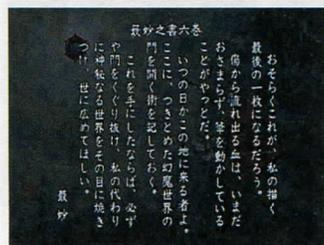 最妙之書六巻
おそらくこれが、私の描く
最後の一枚になるだろう。
傷から流れ出る血は、いまだ
おさまらず、筆を動かしている
ことがやっとだ。
いつの日かこの地に来る者よ。
ここに、つきとめた幻魔世界の
門を開く術を記しておく。
これを手にしたならば、必ず
や門をくぐり抜け、私の代わり
に神秘なる世界をその目に焼き
つけ、世に広めてほしい。
最妙